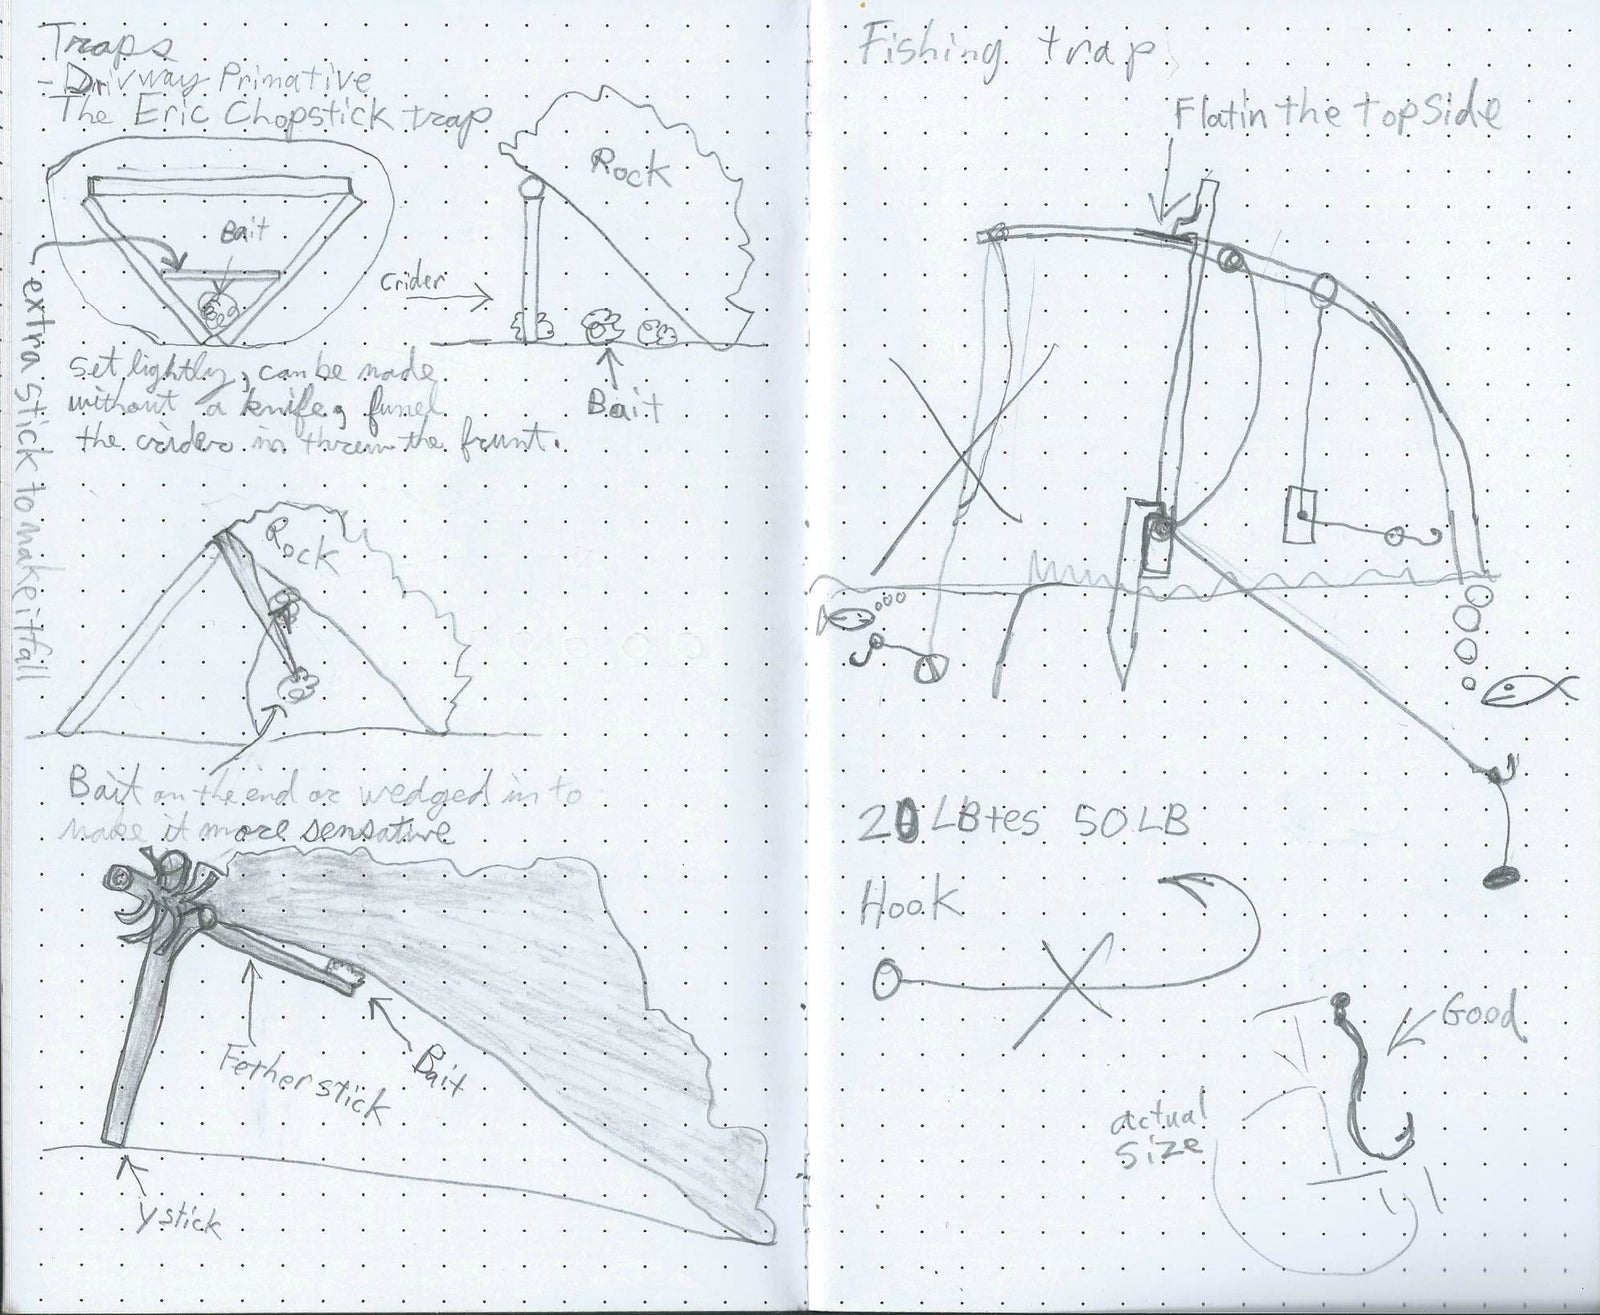 Traps
- Drivway Primative
The Eric Chopstick trap
Bait
Rock
Crider
Bait
extra stick to make it fall
set lightly, can be made
without a knife, funel
the crider in threw the frunt.
Rock
Bait on the end or wedged in to
make it more sensative
Fether stick
Bait
y stick
Fishing trap
Flat in the top side
20 LB tes 50 LB
Hook
Good
actual
size